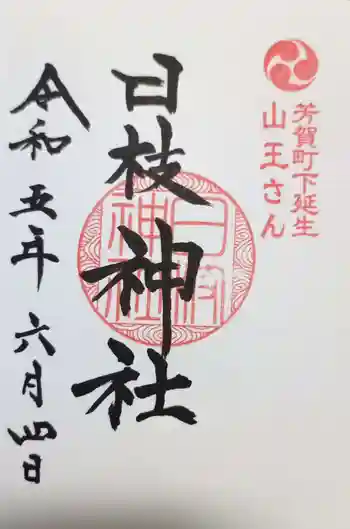 芳賀町下延生
山王さん
日枝神社
日枝
神社
令和五年六月四日